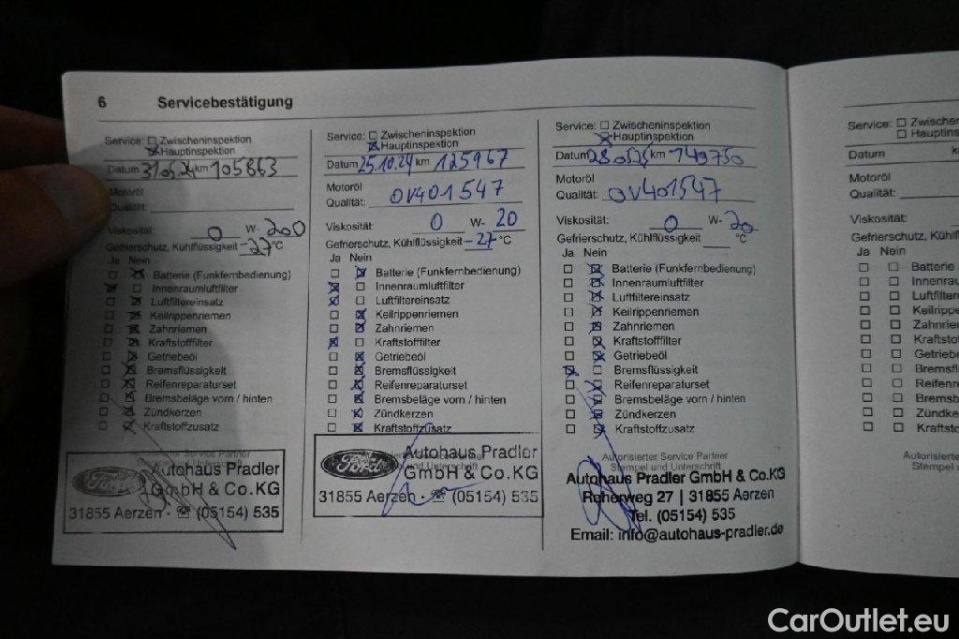 6 Servicebestätigung
Service: Zwischeninspektion
Hauptinspektion
Datum 31.05.24 km 105863
Motoröl
Qualität:
Viskosität: 0 W- 200
Gefrierschutz, Kühlflüssigkeit -27 °C
Ja Nein
Batterie (Funkfernbedienung)
Innenraumluftfilter
Luftfiltereinsatz
Keilrippenriemen
Zahnriemen
Kraftstofffilter
Getriebeöl
Bremsflüssigkeit
Reifenreparaturset
Bremsbeläge vorn / hinten
Zündkerzen
Kraftstoffzusatz
Autorisierter Service Partner
Ford
Autohaus Pradler
GmbH & Co.KG
31855 Aerzen - ☎ (05154) 535
Service: Zwischeninspektion
Hauptinspektion
Datum 25.10.24 km 125967
Motoröl
Qualität: OV401547
Viskosität: 0 W- 20
Gefrierschutz, Kühlflüssigkeit -27 °C
Ja Nein
Batterie (Funkfernbedienung)
Innenraumluftfilter
Luftfiltereinsatz
Keilrippenriemen
Zahnriemen
Kraftstofffilter
Getriebeöl
Bremsflüssigkeit
Reifenreparaturset
Bremsbeläge vorn / hinten
Zündkerzen
Kraftstoffzusatz
Ford
Autohaus Pradler
und Unterschrift
GmbH & Co.KG
31855 Aerzen - ☎ (05154) 535
Service: Zwischeninspektion
Hauptinspektion
Datum km 140750
Motoröl
Qualität: OV401547
Viskosität: 0 W- 20
Gefrierschutz, Kühlflüssigkeit °C
Ja Nein
Batterie (Funkfernbedienung)
Innenraumluftfilter
Luftfiltereinsatz
Keilrippenriemen
Zahnriemen
Kraftstofffilter
Getriebeöl
Bremsflüssigkeit
Reifenreparaturset
Bremsbeläge vorn / hinten
Zündkerzen
Kraftstoffzusatz
Autorisierter Service Partner
Stempel und Unterschrift
Autohaus Pradler GmbH & Co.KG
Reherweg 27 | 31855 Aerzen
Tel. (05154) 535
Email: info@autohaus-pradler.de
Service: Zwischen
Hauptins
Datum k
Motoröl
Qualität:
Viskosität:
Gefrierschutz, Kühlfl
Ja Nein
Batterie
Innenrau
Luftfilter
Keilripp
Zahnrie
Kraftsto
Getriebe
Bremsfl
Reifenre
Bremsb
Zündke
Kraftst
Autorisierte
Stempel
CarOutlet.eu